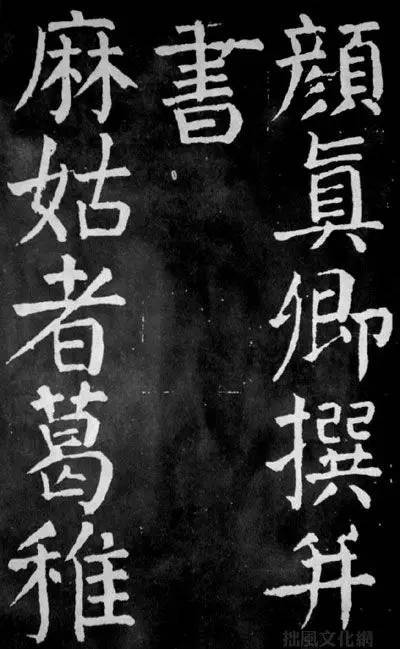 顏真卿撰并
書
麻姑者葛稚
拙風文化網